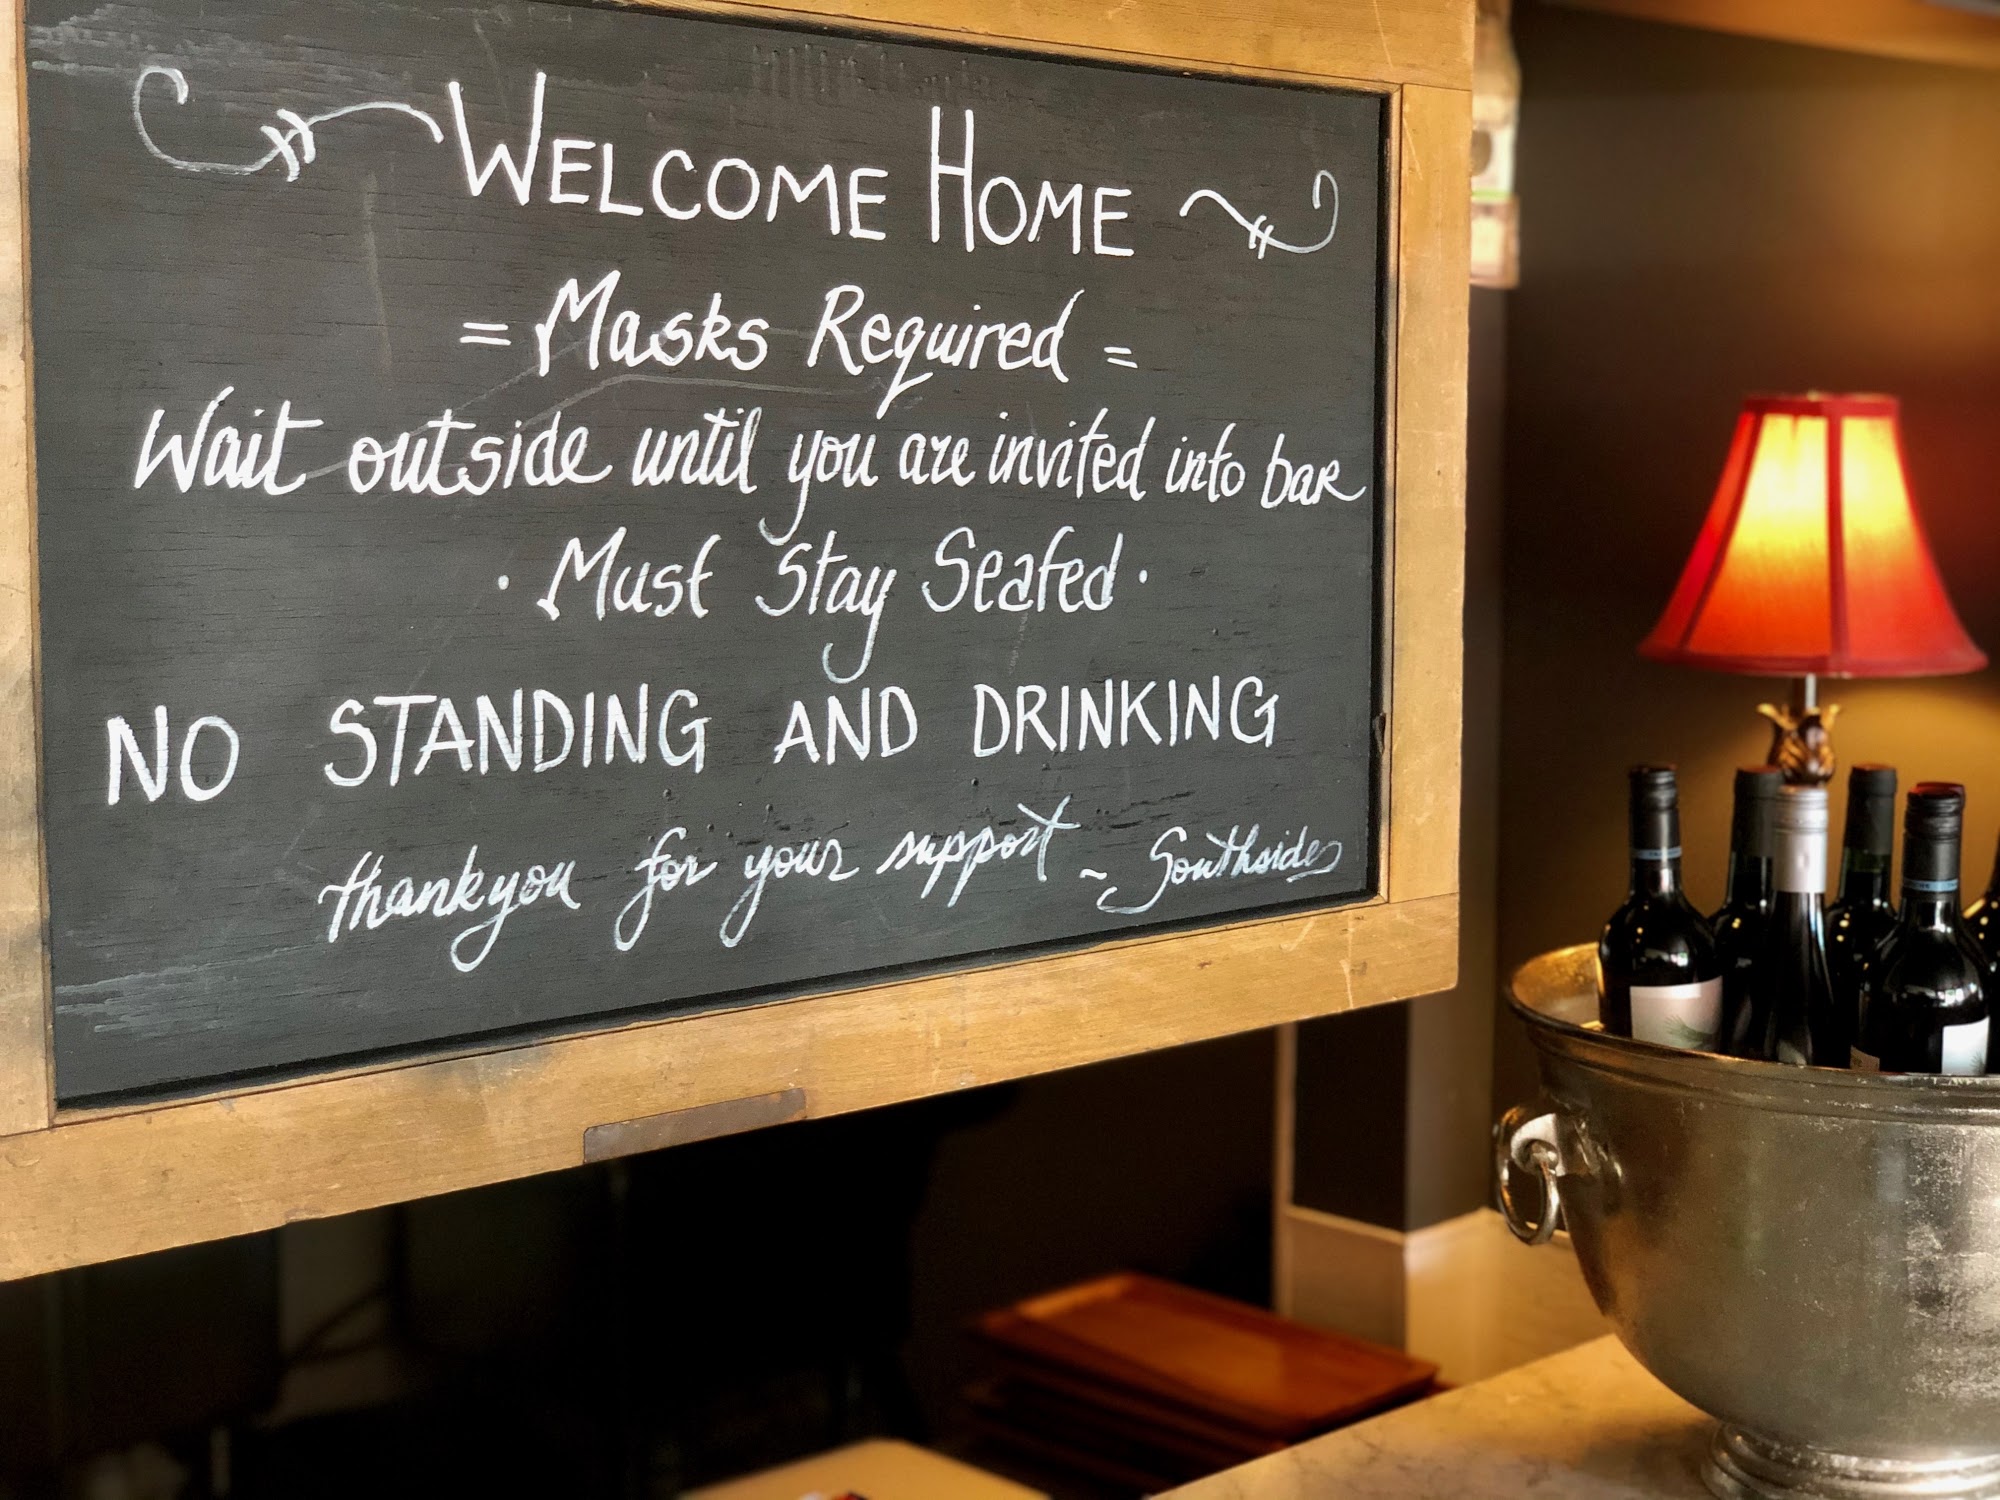 WELCOME HOME
= Masks Required =
Wait outside until you are invited into bar
· Must Stay Seated ·
NO STANDING AND DRINKING
thankyou for your support ~ Southsides